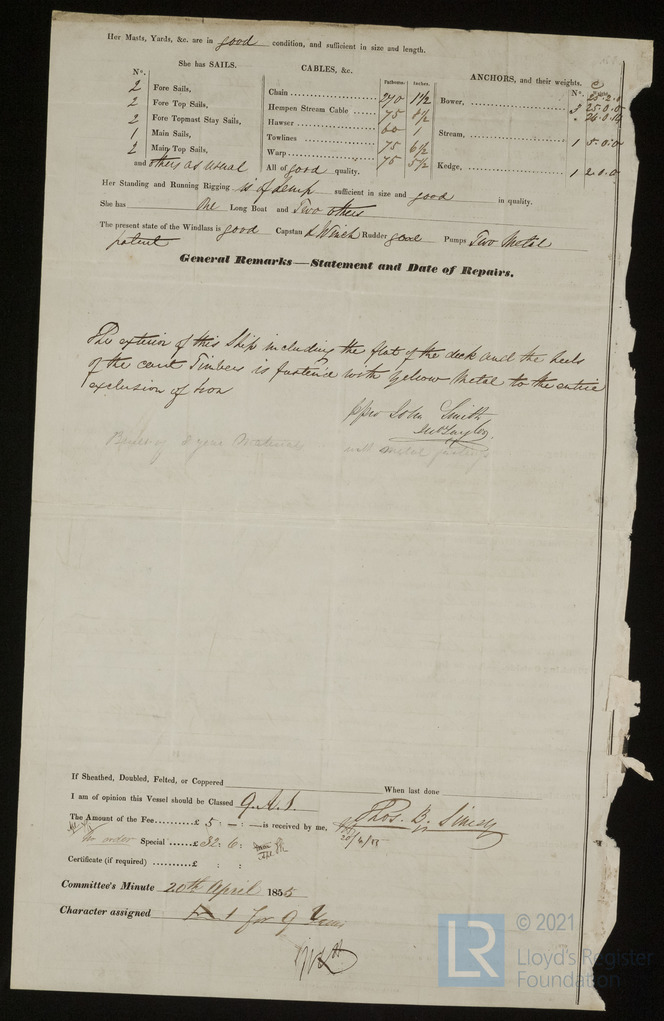 Her Masts, Yards, &c. are in good condition, and sufficient in size and length.
She has SAILS. CABLES, &c. ANCHORS, and their weights.
Nº. Fathoms. Inches. Nº. Weights
2 Fore Sails, Chain 270 1 1/2 Bower, 3 25.2.0
2 Fore Top Sails, Hempen Stream Cable 75 8 1/2 25.0.0
2 Fore Topmast Stay Sails, Hawser 60 1 Stream, 1 5.0.0
1 Main Sails, Towlines 75 6 1/2
2 Main Top Sails, Warp 75 5 1/2 Kedge, 1 2.0.0
and others as usual All of good quality.
Her Standing and Running Rigging is of hemp sufficient in size and good in quality.
She has One Long Boat and Two others
The present state of the Windlass is good Capstan & Winch Rudder good Pumps Two Metal
patent
General Remarks—Statement and Date of Repairs.
The exterior of this Ship including the flat of the deck and the heels
of the cant Timbers is fasten'd with Yellow Metal to the entire
exclusion of Iron
John Smith
If Sheathed, Doubled, Felted, or Coppered When last done
I am of opinion this Vessel should be Classed 9.A.1.
The Amount of the Fee £ 5 : — : — is received by me, Thos. B. Simey
order Special £ 32 : 6 :
Certificate (if required) £ : :
Committee's Minute 20th April 1855
Character assigned A 1 for 9 Years
LR © 2021
Lloyd's Register
Foundation